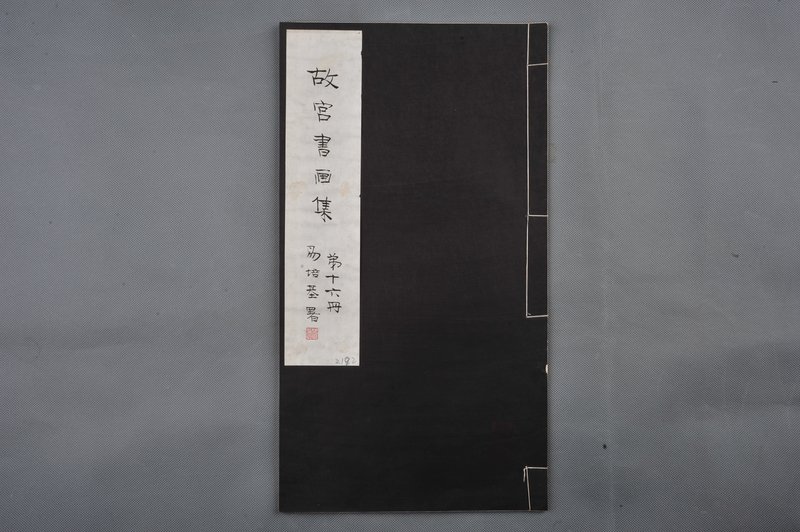 故宮書画集
第十六冊
易培基署
2192